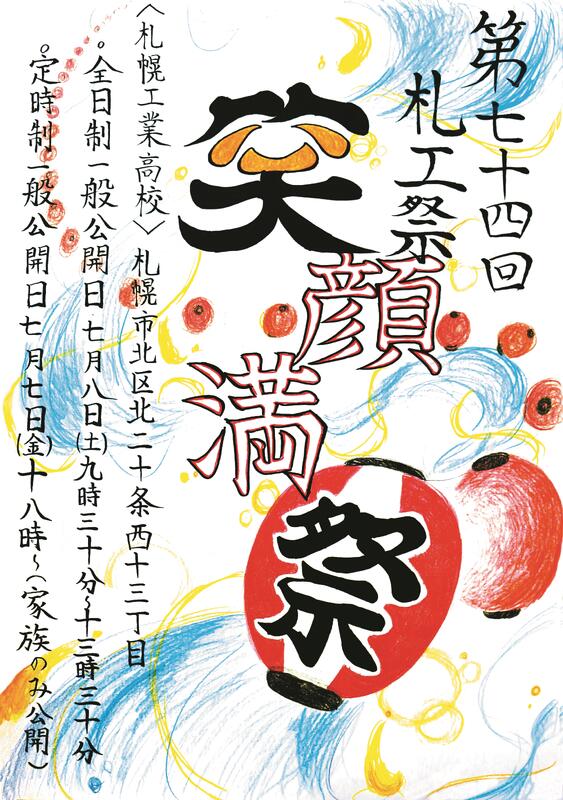 第七十四回
札工祭
笑顔満祭
〈札幌工業高校〉札幌市北区北二十条西十三丁目
。全日制一般公開日七月八日(土)九時三十分~十三時三十分
。定時制一般公開日七月七日(金)十八時~(家族のみ公開)